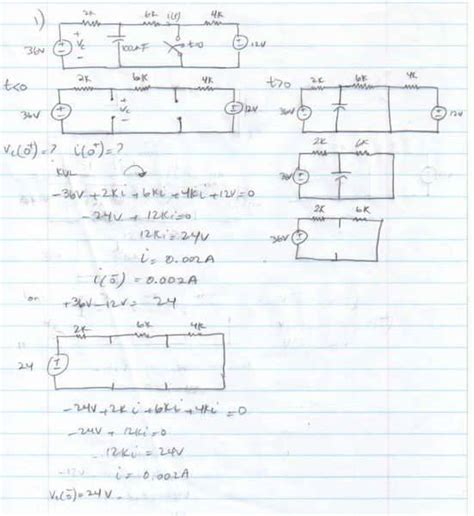 1)
2K 6K i(t) 4K
36V Vc 100uF t=0 12V
t<0 2K 6K 4K
36V + Vc - 12V
t>0 2K 6K 4K
36V 12V
Vc(0⁺)=? i(0⁺)=?
2K 6K
36V
KVL
-36V + 2Ki + 6Ki + 4Ki + 12V = 0
-24V + 12Ki = 0
12Ki = 24V
i = 0.002A
i(0⁻) = 0.002A
2K 6K
36V
or
+36V - 12V = 24
2K 6K 4K
24
-24V + 2Ki + 6Ki + 4Ki = 0
-24V + 12Ki = 0
12Ki = 24V
i = 0.002A
Vc(0⁻) = 24V